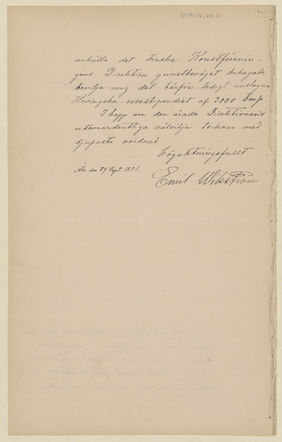 anhålla det Finska Konstförenin-
gens Direktion gunstbenäget behagade
bevilja mig det härför ledigt anslagna
Hovingska resestipendiet af 3000 Fmk
I hopp om den ärade Direktionens
utomordentliga välvilja tecknar med
djupaste vördnad
Högaktningsfullt
Åbo den 29 Sept. 1891.
Emil Wikström